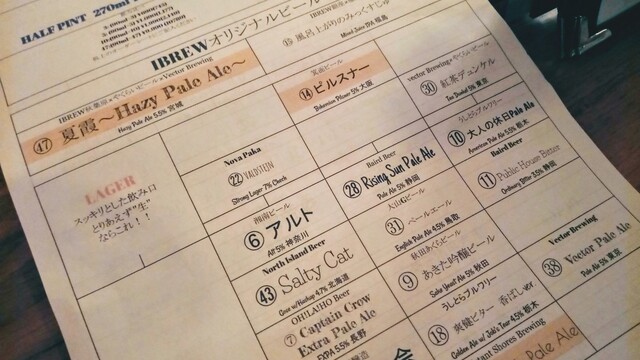 HALF PINT 270ml
IBREWオリジナルビール
⑮ 風呂上がりのみっくすじゅ
Mixed Juice IPA 福島
IBREW秋葉原×やくらいビール×Vector Brewing
㊼ 夏霞〜Hazy Pale Ale〜
Hazy Pale Ale 5.5% 宮城
箕面ビール
⑭ ピルスナー
Bohemian Pilsner 5% 大阪
vector Brewing×やくらいビール
㉚ 紅茶デュンケル
Tea Dunkel 5% 東京
LAGER
スッキリとした飲み口
とりあえず"生"
ならこれ！！
Nova Paka
㉒ VALDSTEJN
Strong Lager 7% Czech
Baird Beer
㉘ Rising Sun Pale Ale
Pale Ale 5% 静岡
うしとらブルワリー
⑩ 大人の休日Pale Ale
American Pale Ale 4.5% 栃木
湘南ビール
⑥ アルト
Alt 5% 神奈川
大山Gビール
㉛ ペールエール
English Pale Ale 4.5% 鳥取
Baird Beer
⑪ Public House Bitter
Ordinary Bitter 3.5% 静岡
North Island Beer
㊸ Salty Cat
Gose w/Haskap 4.7% 北海道
秋田あくらビール
⑨ あきた吟醸ビール
Sake Yeast Ale 5% 秋田
Vector Brewing
㊳ Vector Pale Ale
Pale Ale 5% 東京
OH!LA!HO Beer
⑦ Captain Crow
Extra Pale Ale
EXPA 5.5% 長野
うしとらブルワリー
⑱ 爽健ビター 香ばしver.
Golden Ale w/Jobi's Tear 4.5% 栃木
t Shores Brewing
Pale Ale